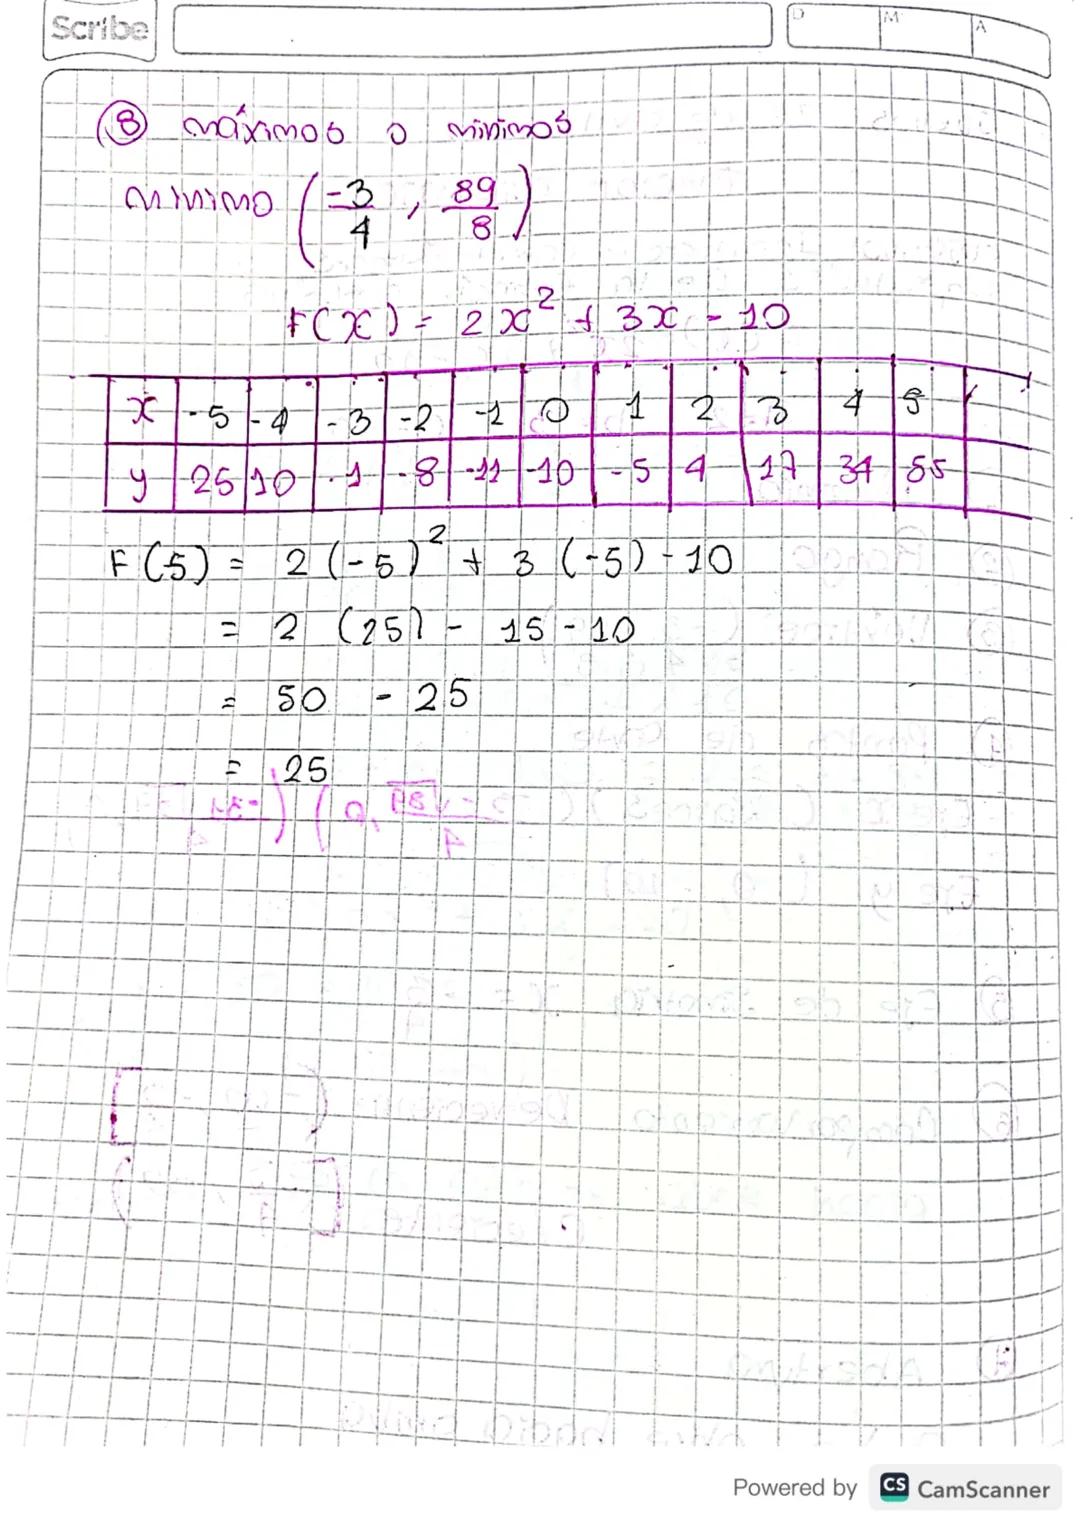 Scribe
D M A
8 máximos o minimos
minimo (-3/4, 89/8)
F(x) = 2x² + 3x - 10
x -5 -4 -3 -2 -1 0 1 2 3 4 5
y 25 10 -1 -8 -11 -10 -5 4 17 34 55
F(5) = 2(-5)² + 3(-5) - 10
= 2 (25) - 15 - 10
= 50 - 25
= 25
Powered by CS CamScanner